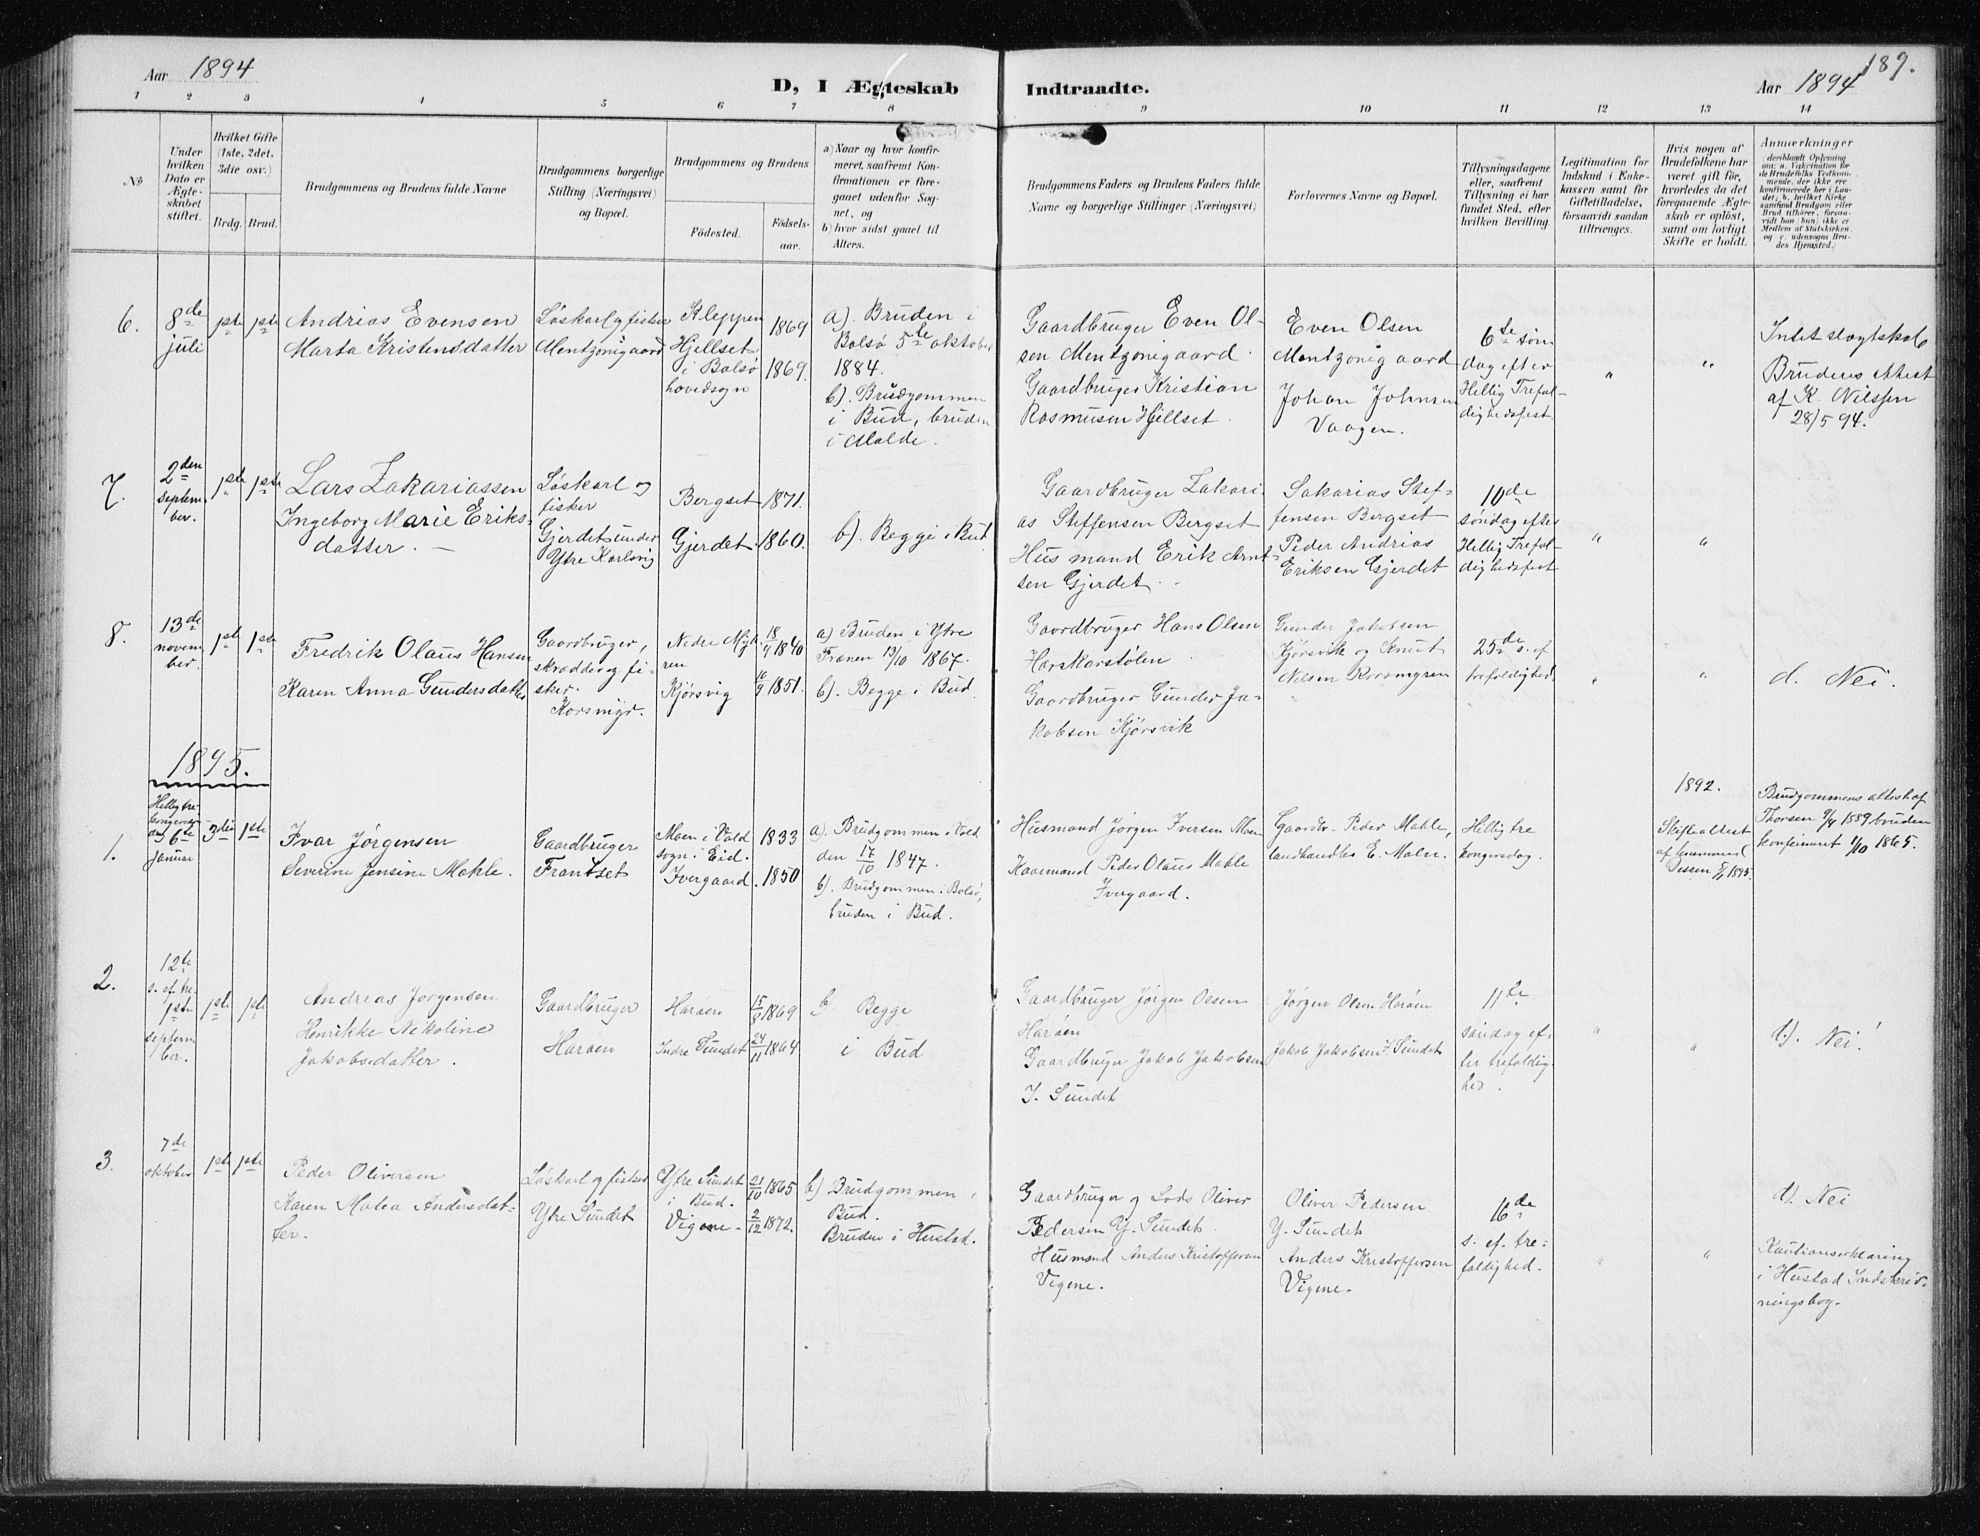 Aar 1894
D, I Ægteskab Indtraadte.
Aar 1894
189.
1 2 3 4 5 6 7 8 9 10 11 12 13 14
No
Under hvilken Dato er Ægteskabet stiftet.
Hvilket Gifte (1ste, 2det, 3die osv.)
Brdg. Brud.
Brudgommens og Brudens fulde Navne
Brudgommens borgerlige Stilling (Næringsvei) og Bopæl.
Brudgommens og Brudens
Fødested.
Fødselsaar.
a) Naar og hvor konfirmeret, saafremt Konfirmationen er foregaaet udenfor Sognet, og
b) hvor sidst gaaet til Alters.
Brudgommens Faders og Brudens Faders fulde Navne og borgerlige Stillinger (Næringsvei)
Forlovernes Navne og Bopæl.
Tillysningsdagene eller, saafremt Tillysning ei har fundet Sted, efter hvilken Bevilling.
Legitimation for Indskud i Enkekassen samt for Giftetilladelse, forsaavidt saadan tiltrænges.
Hvis nogen af Brudefolkene har været gift før, hvorledes da det foregaaende Ægteskab er opløst, samt om lovligt Skifte er holdt.
Anmærkninger
6.
8de
juli
1ste 1ste
Andrias Evensen
Marta Kristensdatter
Løskarl og fisker
Mentzonigaard
Kleppen
Hjellset
i Bolsø
hovedsogn
1869
1869.
a). Bruden i
Bolsø 5te oktober
1884.
b). Brudgommen
i Bud, bruden
i Molde.
Gaardbruger Even Ol-
sen Mentzonigaard.
Gaardbruger Kristian
Rasmusen Hjellset.
Even Olsen
Mentzonigaard
Johan Johnsen
Vaagen.
6te søn
dag efter
Hellig Trefol-
dighedsfest
"
"
Intet slægtskab
Brudens attest
af K. Nilssen
28/5 94.
7.
2den
septem-
ber.
1ste 1ste
Lars Zakariassen
Ingeborg Marie Eriks-
datter. —
Løskarl og
fisker
Gjerdet under
Ytre Karlsvig
Bergset
Gjerdet
1871.
1860.
b). Begge i Bud
Gaardbruger Zakari-
as Steffensen Bergset
Husmand Erik Arnt-
sen Gjerdet.
Sakarias Stef-
fensen Bergset
Peder Andrias
Eriksen Gjerdet
10de
søndag efter
Hellig Trefol-
dighedsfest
"
"
8.
13de
novem
ber.
1ste 1ste
Fredrik Olaus Hansen
Karen Anna Gundersdatter
Gaardbruger,
skrædder og fi-
sker.
Korsmyr.
Nedre Myk
ren
Kjørsvig
18/4 1840
16/9 1851.
a) Bruden i Ytre
Frænen 13/10 1867.
b). Begge i Bud
Gaardbruger Hans Olsen
Harskarstølen
Gaardbruger Gunder Ja-
kobsen Kjørsvik
Gunder Jakobsen
Kjørsvik og Knut
Nilsen Korsmyren
25de s. ef
trefoldighed.
"
"
d. Nei.
1895.
1.
Hellig tre-
kongersdag
den 6te
januar
3die 1ste
Ivar Jørgensen
Severine Jensine Mahle.
Gaardbruger
Frantset
Moen i Vold
sogn i Eid.
Ivergaard.
1833
1850
a). Brudgommen i Vold
den 17/10 1847.
b). Brudgommen i Bolsø,
bruden i Bud.
Husmand Jørgen Iversen Moen
Kaarmand Peder Olaus Mahle
Ivergaard.
Gaardbr. Peder Mahle,
landhandler E. Malm.
Hellig tre
kongersdag.
1892.
Skifteattest
af lensmand
1895.
Brudgommens attest af
Thorsen 9/4 1889 bruden
konfirmeret 1/10 1865.
2.
12te
s. ef. tre.
1ste
septem
ber.
1ste 1ste
Andreas Jørgensen
Henrikke Nekoline
Jakobsdatter.
Gaardbruger
Harøen
Harøen
Indre Sundet
15/8 1869
24/11 1864
b. Begge
i Bud
Gaardbruger Jørgen Olsen
Harøen
Gaardbruger Jakob Jakobsen
I. Sundet
Jørgen Olsen Harøen
Jakob Jakobsen I. Sundet
11te
søndag ef-
ter trefoldig-
hed.
"
"
d). Nei!
3.
7de
oktober
1ste 1ste
Peder Oliversen
Karen Malea Andersdat-
ter.
Løskarl og fisker
Ytre Sundet
Ytre Sundet
i Bud.
Vigene.
21/10 1865
2/12 1872.
b) Brudgommen i
Bud.
Bruden i Hustad.
Gaardbruger og Lods Oliver
Pedersen Y. Sundet.
Husmand Anders Kristoffersen
Vigene.
Oliver Pedersen
Y. Sundet
Anders Kristoffersen
Vigene.
16de
s. ef. tre-
foldighed.
"
"
d). Nei
Kautionserklæring
i Hustad Indskriv-
ningsbog.